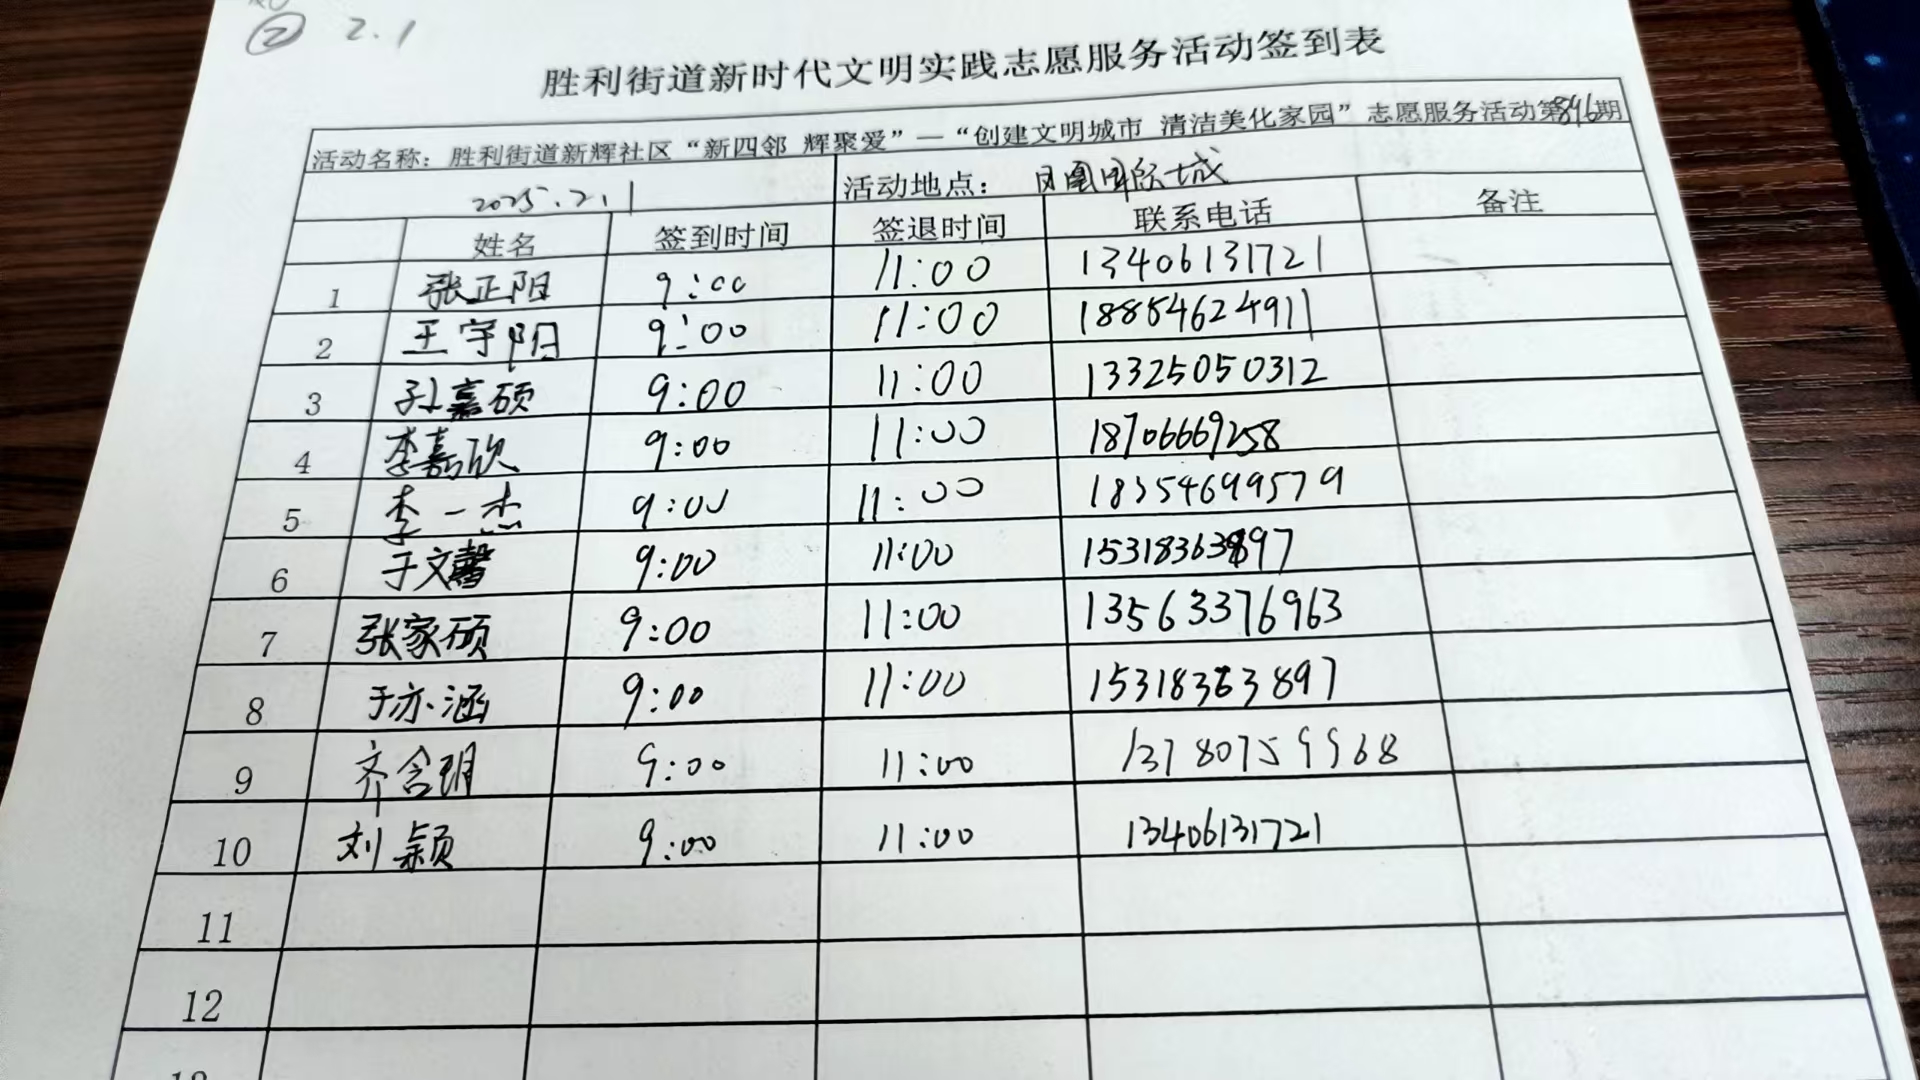 ② 2.1
胜利街道新时代文明实践志愿服务活动签到表
活动名称：胜利街道新辉社区“新四邻 辉聚爱”—“创建文明城市 清洁美化家园”志愿服务活动第896期
2025.2.1 活动地点：凤凰国际城
姓名 签到时间 签退时间 联系电话 备注
1 张正阳 9:00 11:00 13406131721
2 王宇阳 9:00 11:00 18854624911
3 孙嘉硕 9:00 11:00 13325050312
4 李嘉欣 9:00 11:00 18706669258
5 李一杰 9:00 11:00 18354699579
6 于文馨 9:00 11:00 15318363897
7 张家硕 9:00 11:00 13563376963
8 于亦涵 9:00 11:00 15318363897
9 齐含玥 9:00 11:00 13780759968
10 刘颖 9:00 11:00 13406131721
11
12